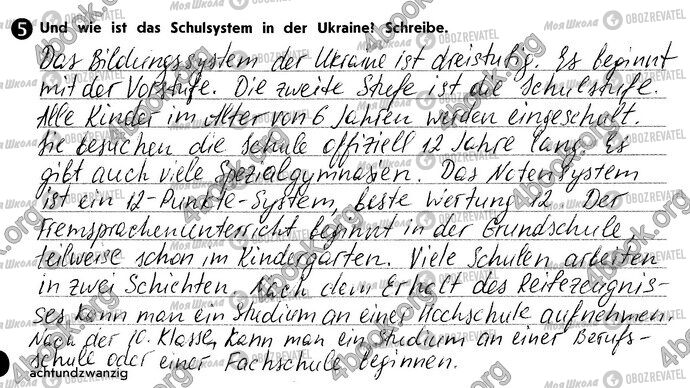 5 Und wie ist das Schulsystem in der Ukraine? Schreibe.
Das Bildungssystem der Ukraine ist dreistufig. Es beginnt
mit der Vorstufe. Die zweite Stufe ist die Schulstufe.
Alle Kinder im Alter von 6 Jahren werden eingeschult.
Sie besuchen die Schule offiziell 12 Jahre lang. Es
gibt auch viele Spezialgymnasien. Das Notensystem
ist ein 12-Punkte-System, beste Wertung 12. Der
Fremsprachenunterricht beginnt in der Grundschule,
teilweise schon im Kindergarten. Viele Schulen arbeiten
in zwei Schichten. Nach dem Erhalt des Reifezeugnis-
ses kann man ein Studium an einer Hochschule aufnehmen.
Nach der 10. Klasse, kann man ein Studium an einer Berufs-
schule oder einer Fachschule beginnen.
achtundzwanzig
МОЯ ШКОЛА OBOZREVATEL
4book.org